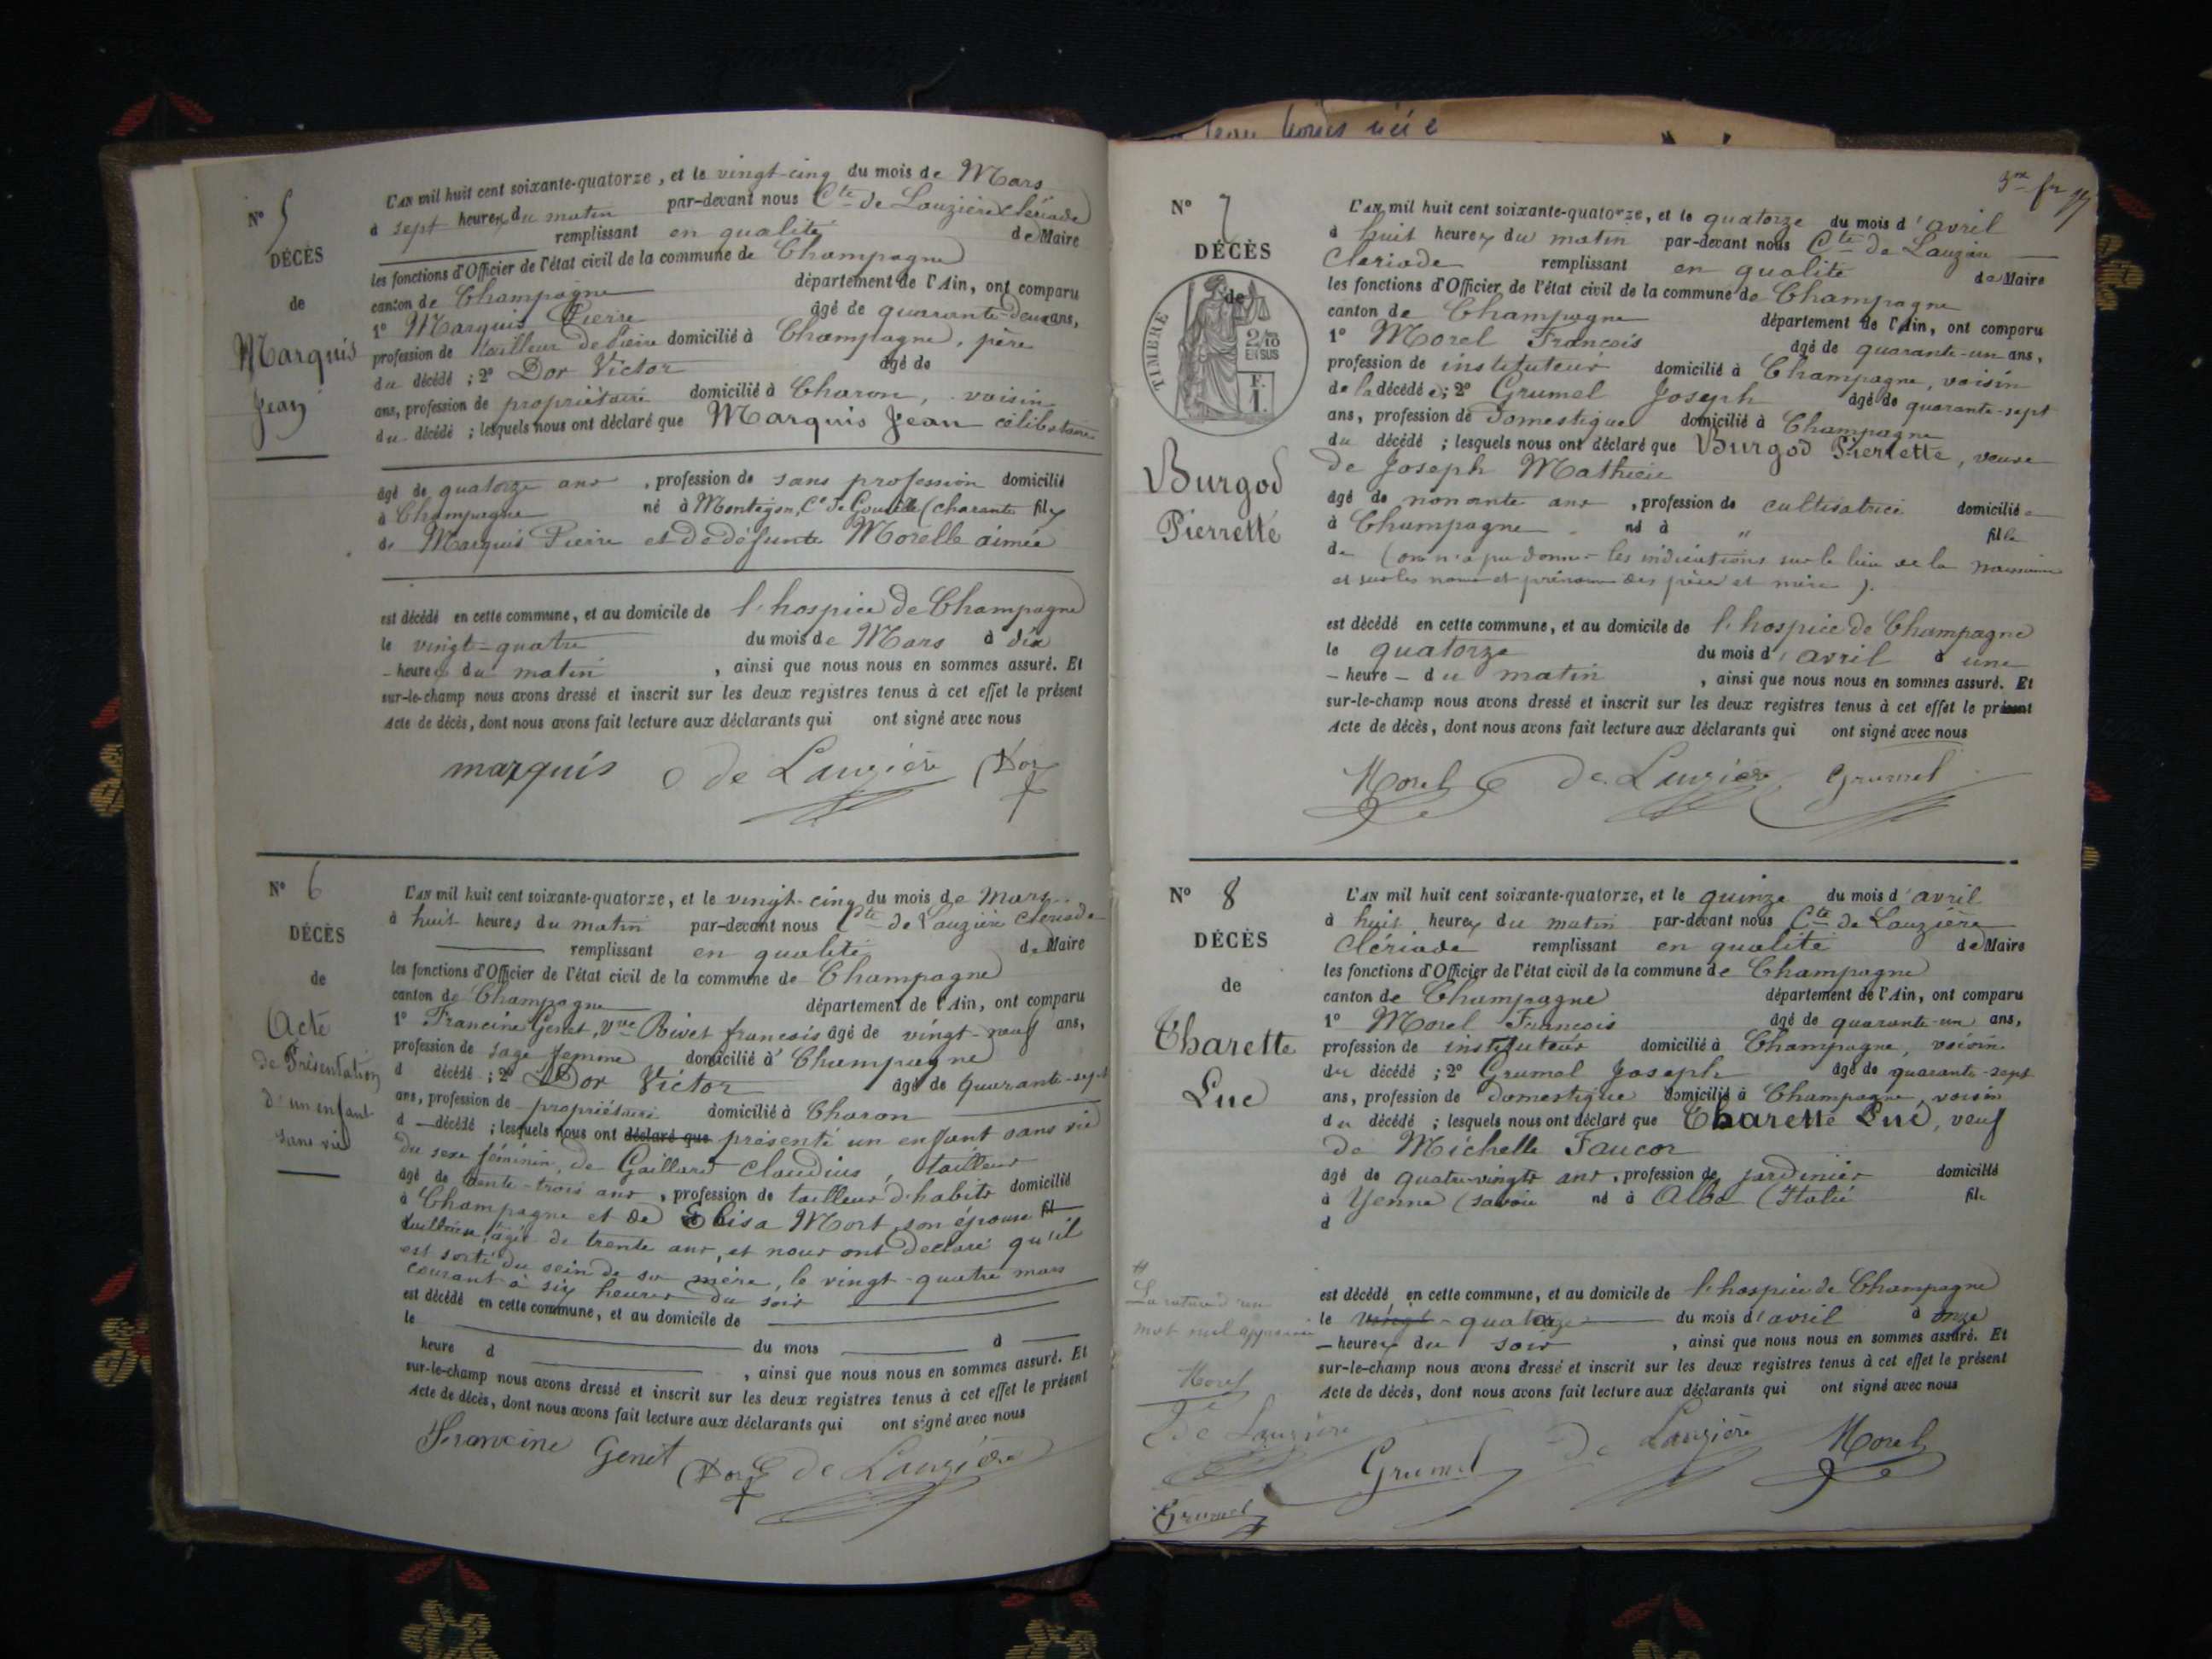 N° 5
DÉCÈS
de
Marquis
Jean
L'AN mil huit cent soixante-quatorze, et le vingt-cinq du mois de Mars
à sept heures du matin par-devant nous Cte de Lauzière Clériade
remplissant en qualité de Maire
les fonctions d'Officier de l'état civil de la commune de Champagne
canton de Champagne département de l'Ain, ont comparu
1° Marquis Pierre âgé de quarante-deux ans,
profession de tailleur de Pierre domicilié à Champagne, père
du décédé ; 2° Dor Victor âgé de
ans, profession de propriétaire domicilié à Charon, voisin
du décédé ; lesquels nous ont déclaré que Marquis Jean célibataire
âgé de quatorze ans, profession de sans profession domicilié
à Champagne né à Montégon, Cne de (charente fils
de Marquis Pierre et de défunte Morelle aimée
est décédé en cette commune, et au domicile de l'hospice de Champagne
le vingt-quatre du mois de Mars à dix
- heures du matin, ainsi que nous nous en sommes assuré. Et
sur-le-champ nous avons dressé et inscrit sur les deux registres tenus à cet effet le présent
Acte de décès, dont nous avons fait lecture aux déclarants qui ont signé avec nous
marquis C de Lauzière Dor
N° 6
DÉCÈS
de
Acte
de Présentation
d'un enfant
sans vie
L'AN mil huit cent soixante-quatorze, et le vingt-cinq du mois de Mars
à huit heures du matin par-devant nous Cte de Lauzière Clériade
remplissant en qualité de Maire
les fonctions d'Officier de l'état civil de la commune de Champagne
canton de Champagne département de l'Ain, ont comparu
1° Francine Genet, Vve Rivet françois âgé de vingt-neuf ans,
profession de sage femme domicilié à Champagne
d décédé ; 2° Dor Victor âgé de quarante-sept
ans, profession de propriétaire domicilié à Charon
d décédé ; lesquels nous ont déclaré que présenté un enfant sans vie
du sexe féminin, de Gaillard Claudius, tailleur
âgé de trente-trois ans, profession de tailleur d'habits domicilié
à Champagne et de Elisa Mort, son épouse fil
âgée de trente ans, et nous ont déclaré qu'il
est sorti du sein de sa mère, le vingt-quatre mars
courant à six heures du soir
est décédé en cette commune, et au domicile de
le du mois à
heure d, ainsi que nous nous en sommes assuré. Et
sur-le-champ nous avons dressé et inscrit sur les deux registres tenus à cet effet le présent
Acte de décès, dont nous avons fait lecture aux déclarants qui ont signé avec nous
Francine Genet Dor C de Lauzière
N° 7
DÉCÈS
de
TIMBRE
2/10
EN SUS
F.
1.
Burgod
Pierrette
L'AN mil huit cent soixante-quatorze, et le quatorze du mois d'avril
à huit heures du matin par-devant nous Cte de Lauzière
Clériade remplissant en qualité de Maire
les fonctions d'Officier de l'état civil de la commune de Champagne
canton de Champagne département de l'Ain, ont comparu
1° Morel François âgé de quarante-un ans,
profession de instituteur domicilié à Champagne, voisin
de la décédée ; 2° Grumel Joseph âgé de quarante-sept
ans, profession de Domestique domicilié à Champagne
du décédé ; lesquels nous ont déclaré que Burgod Pierrette, veuve
de Joseph Mathieu
âgé de nonante ans, profession de cultivatrice domiciliée
à Champagne né à " fille
de (on n'a pu donner les indications sur le lieu de la naissance
et sur les noms et prénoms des père et mère).
est décédé en cette commune, et au domicile de l'hospice de Champagne
le quatorze du mois d'avril à une
- heure - du matin, ainsi que nous nous en sommes assuré. Et
sur-le-champ nous avons dressé et inscrit sur les deux registres tenus à cet effet le présent
Acte de décès, dont nous avons fait lecture aux déclarants qui ont signé avec nous
Morel C de Lauzière Grumel
N° 8
DÉCÈS
de
Charette
Luc
L'AN mil huit cent soixante-quatorze, et le quinze du mois d'avril
à huit heures du matin par-devant nous Cte de Lauzière
Clériade remplissant en qualité de Maire
les fonctions d'Officier de l'état civil de la commune de Champagne
canton de Champagne département de l'Ain, ont comparu
1° Morel François âgé de quarante-un ans,
profession de instituteur domicilié à Champagne, voisin
du décédé ; 2° Grumel Joseph âgé de quarante-sept
ans, profession de Domestique domicilié à Champagne, voisin
du décédé ; lesquels nous ont déclaré que Charette Luc, veuf
de Michelle Faucoz
âgé de quatre-vingts ans, profession de jardinier domicilié
à Yenne (savoie né à Alba (Italie fils
d
est décédé en cette commune, et au domicile de l'hospice de Champagne
le vingt-quatorze du mois d'avril à onze
- heures du soir, ainsi que nous nous en sommes assuré. Et
sur-le-champ nous avons dressé et inscrit sur les deux registres tenus à cet effet le présent
Acte de décès, dont nous avons fait lecture aux déclarants qui ont signé avec nous
La rature d'un
mot nul approuvée
Morel
C de Lauzière
Grumel
Grumel de Lauzière Morel